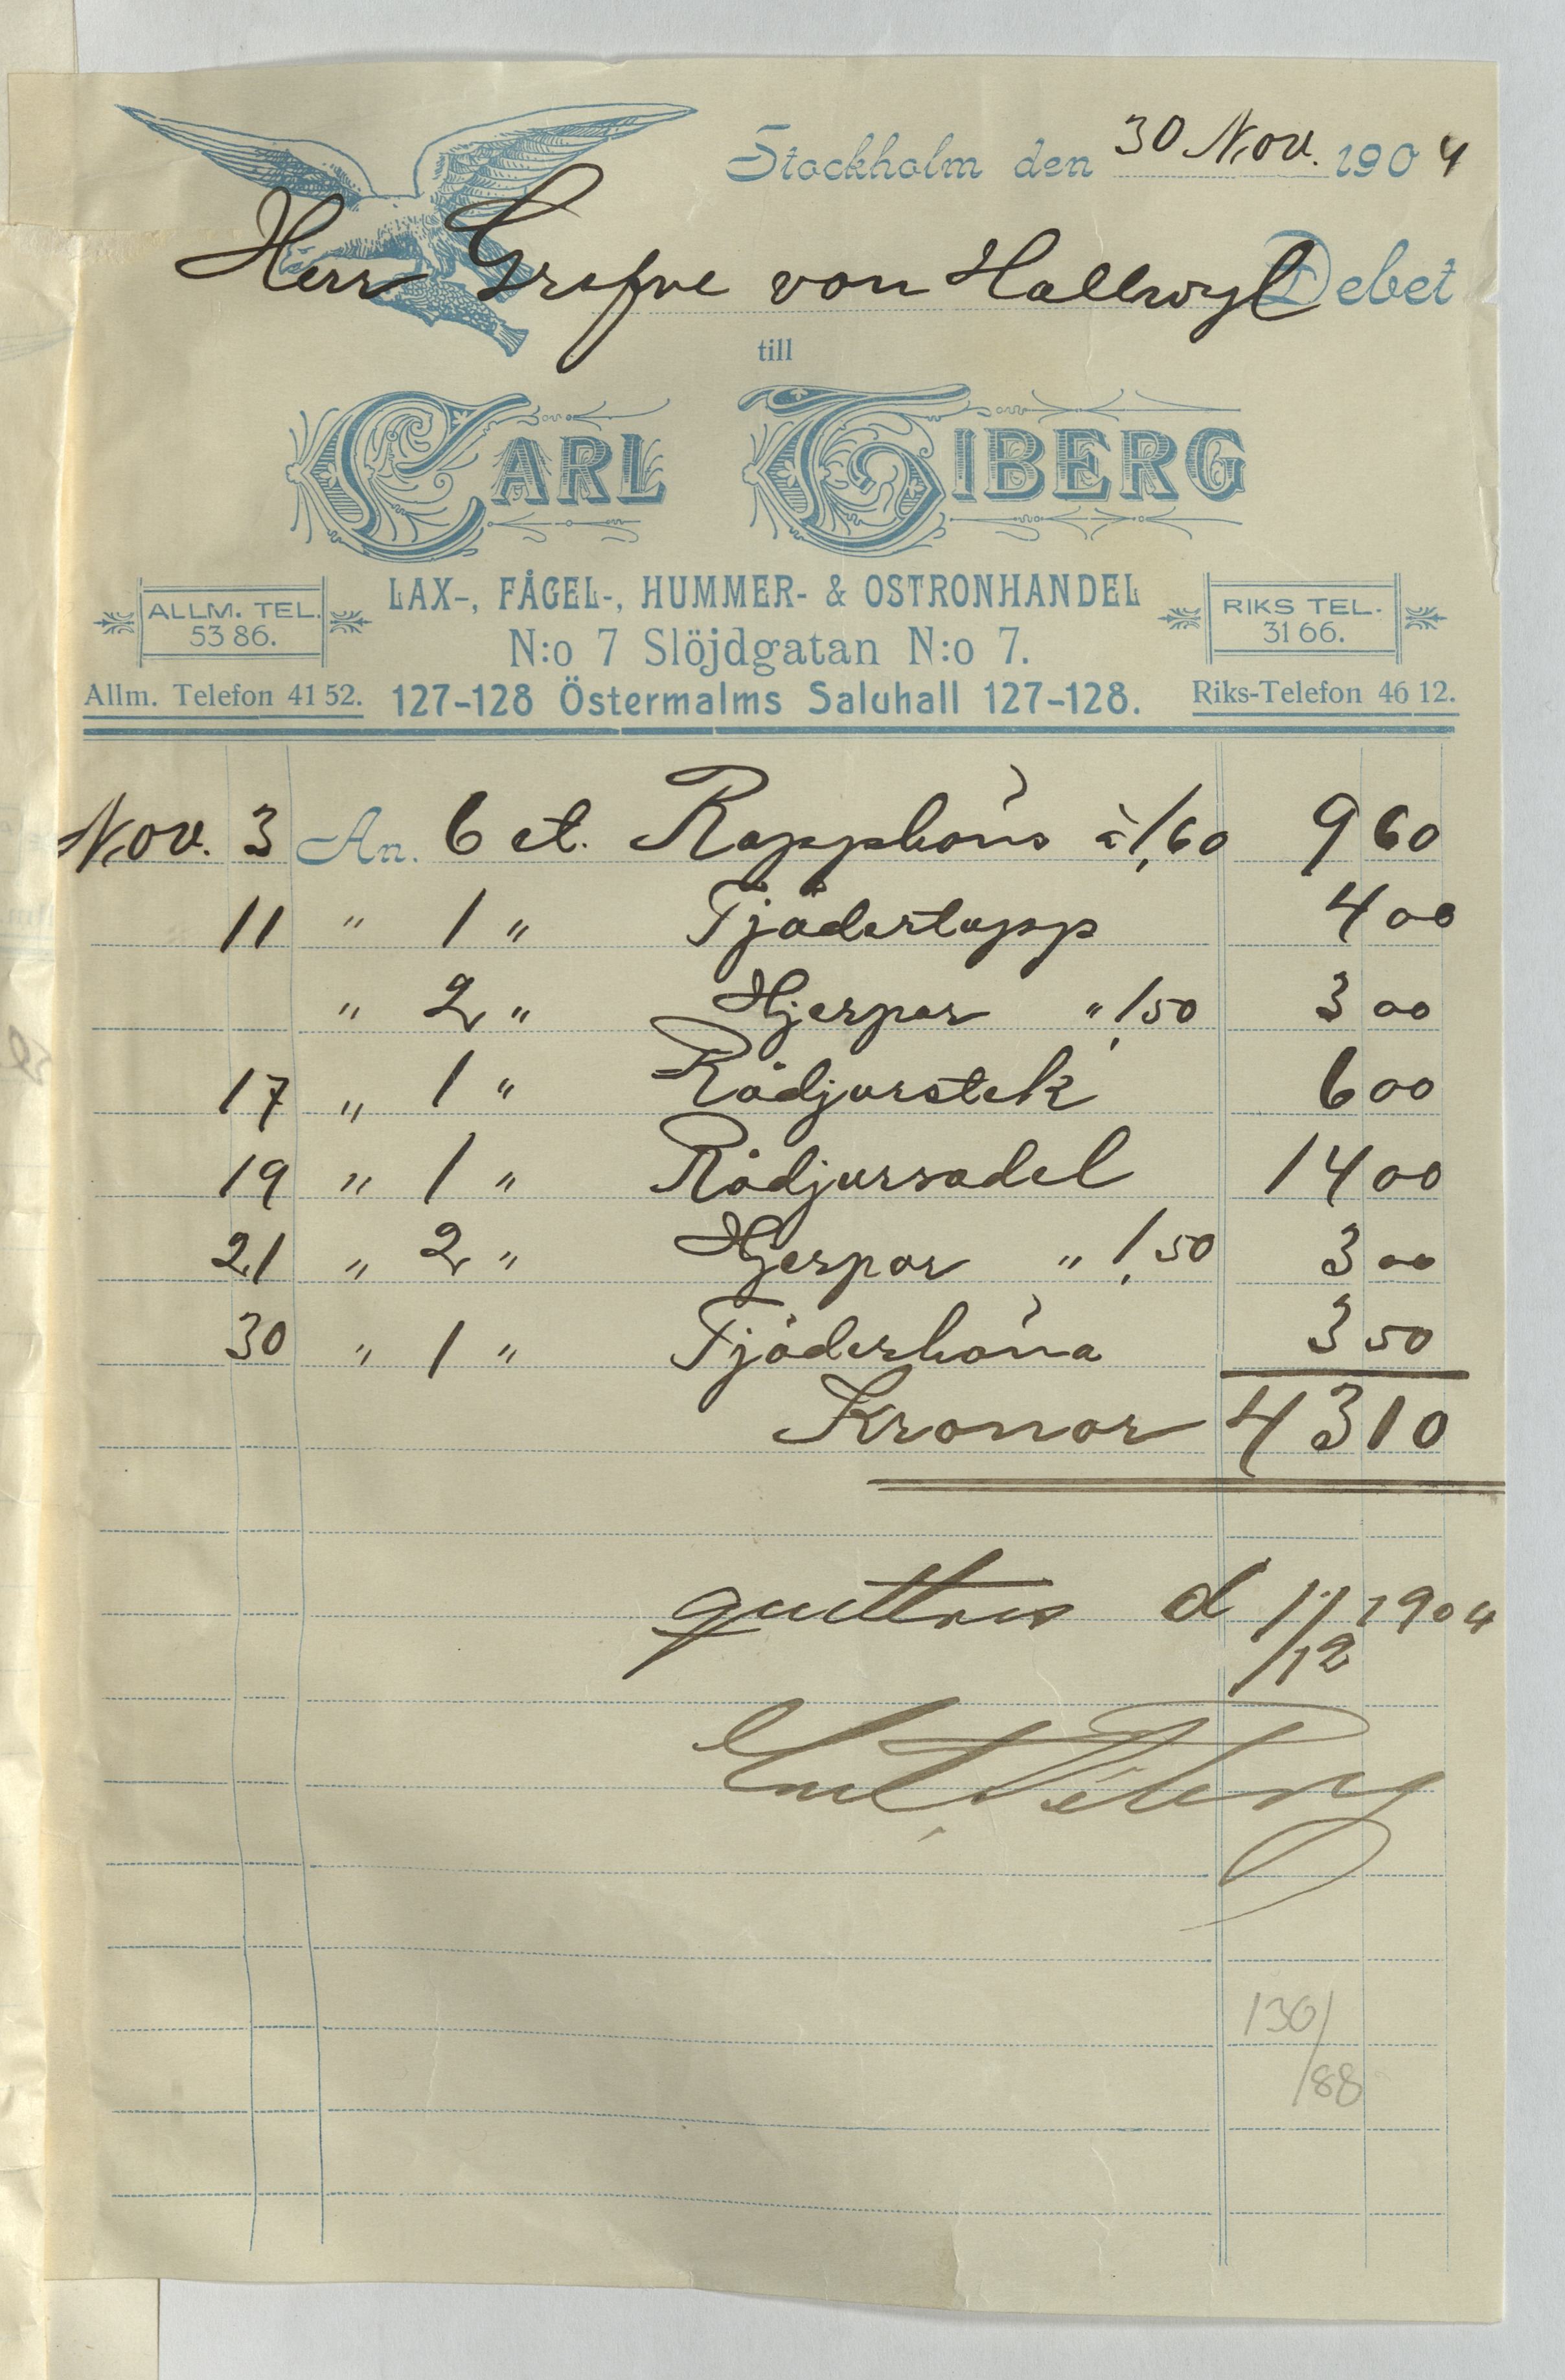 Stockholm den 30 Nov. 1904
Herr Grefve von Hallwyl Debet
till
CARL TIBERG
LAX-, FÅGEL-, HUMMER- & OSTRONHANDEL
ALLM. TEL. 53 86.
RIKS TEL. 31 66.
N:o 7 Slöjdgatan N:o 7.
Allm. Telefon 41 52. 127-128 Östermalms Saluhall 127-128. Riks-Telefon 46 12.
Nov. 3 An. 6 st. Rapphöns à 1,60 9 60
11 " 1 " Tjädertupp 4 00
" 2 " Hjerpar " 1,50 3 00
17 " 1 " Rådjurstek 6 00
19 " 1 " Rådjurssadel 14 00
21 " 2 " Hjerpar " 1,50 3 00
30 " 1 " Tjäderhöna 3 50
Kronor 43 10
qvitteras d 1/12 1904
Carl Tiberg
130/88